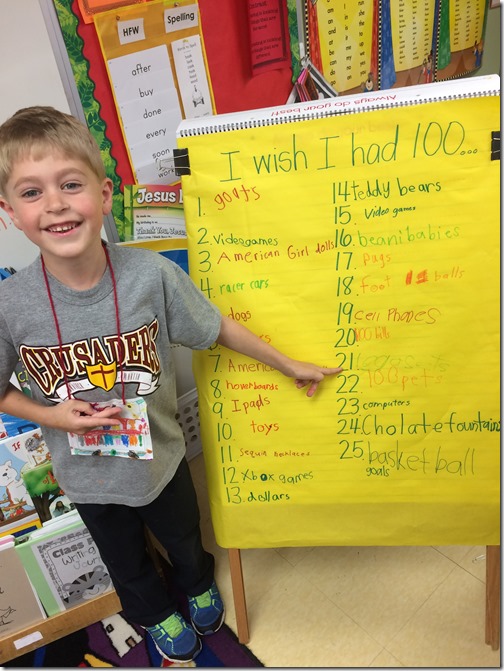 HFW
Spelling
after
buy
done
every
soon
work
Always do your best!
Jesus
I wish I had 100...
1. goats
2. Videogames
3. American Girl dolls
4. racer cars
dogs
7. America
8. hoverboards
9. Ipads
10. toys
11. Sequin necklaces
12. Xbox games
13. dollars
14. teddy bears
15. Video games
16. beanibabies
17. Pugs
18. foot balls
19. Cell Phones
20. 100 bills
21. Legosets
22. 100 pets
23. computers
24. Cholate fountains
25. basketball
goals
CRUSADERS
IF
Class
Writing